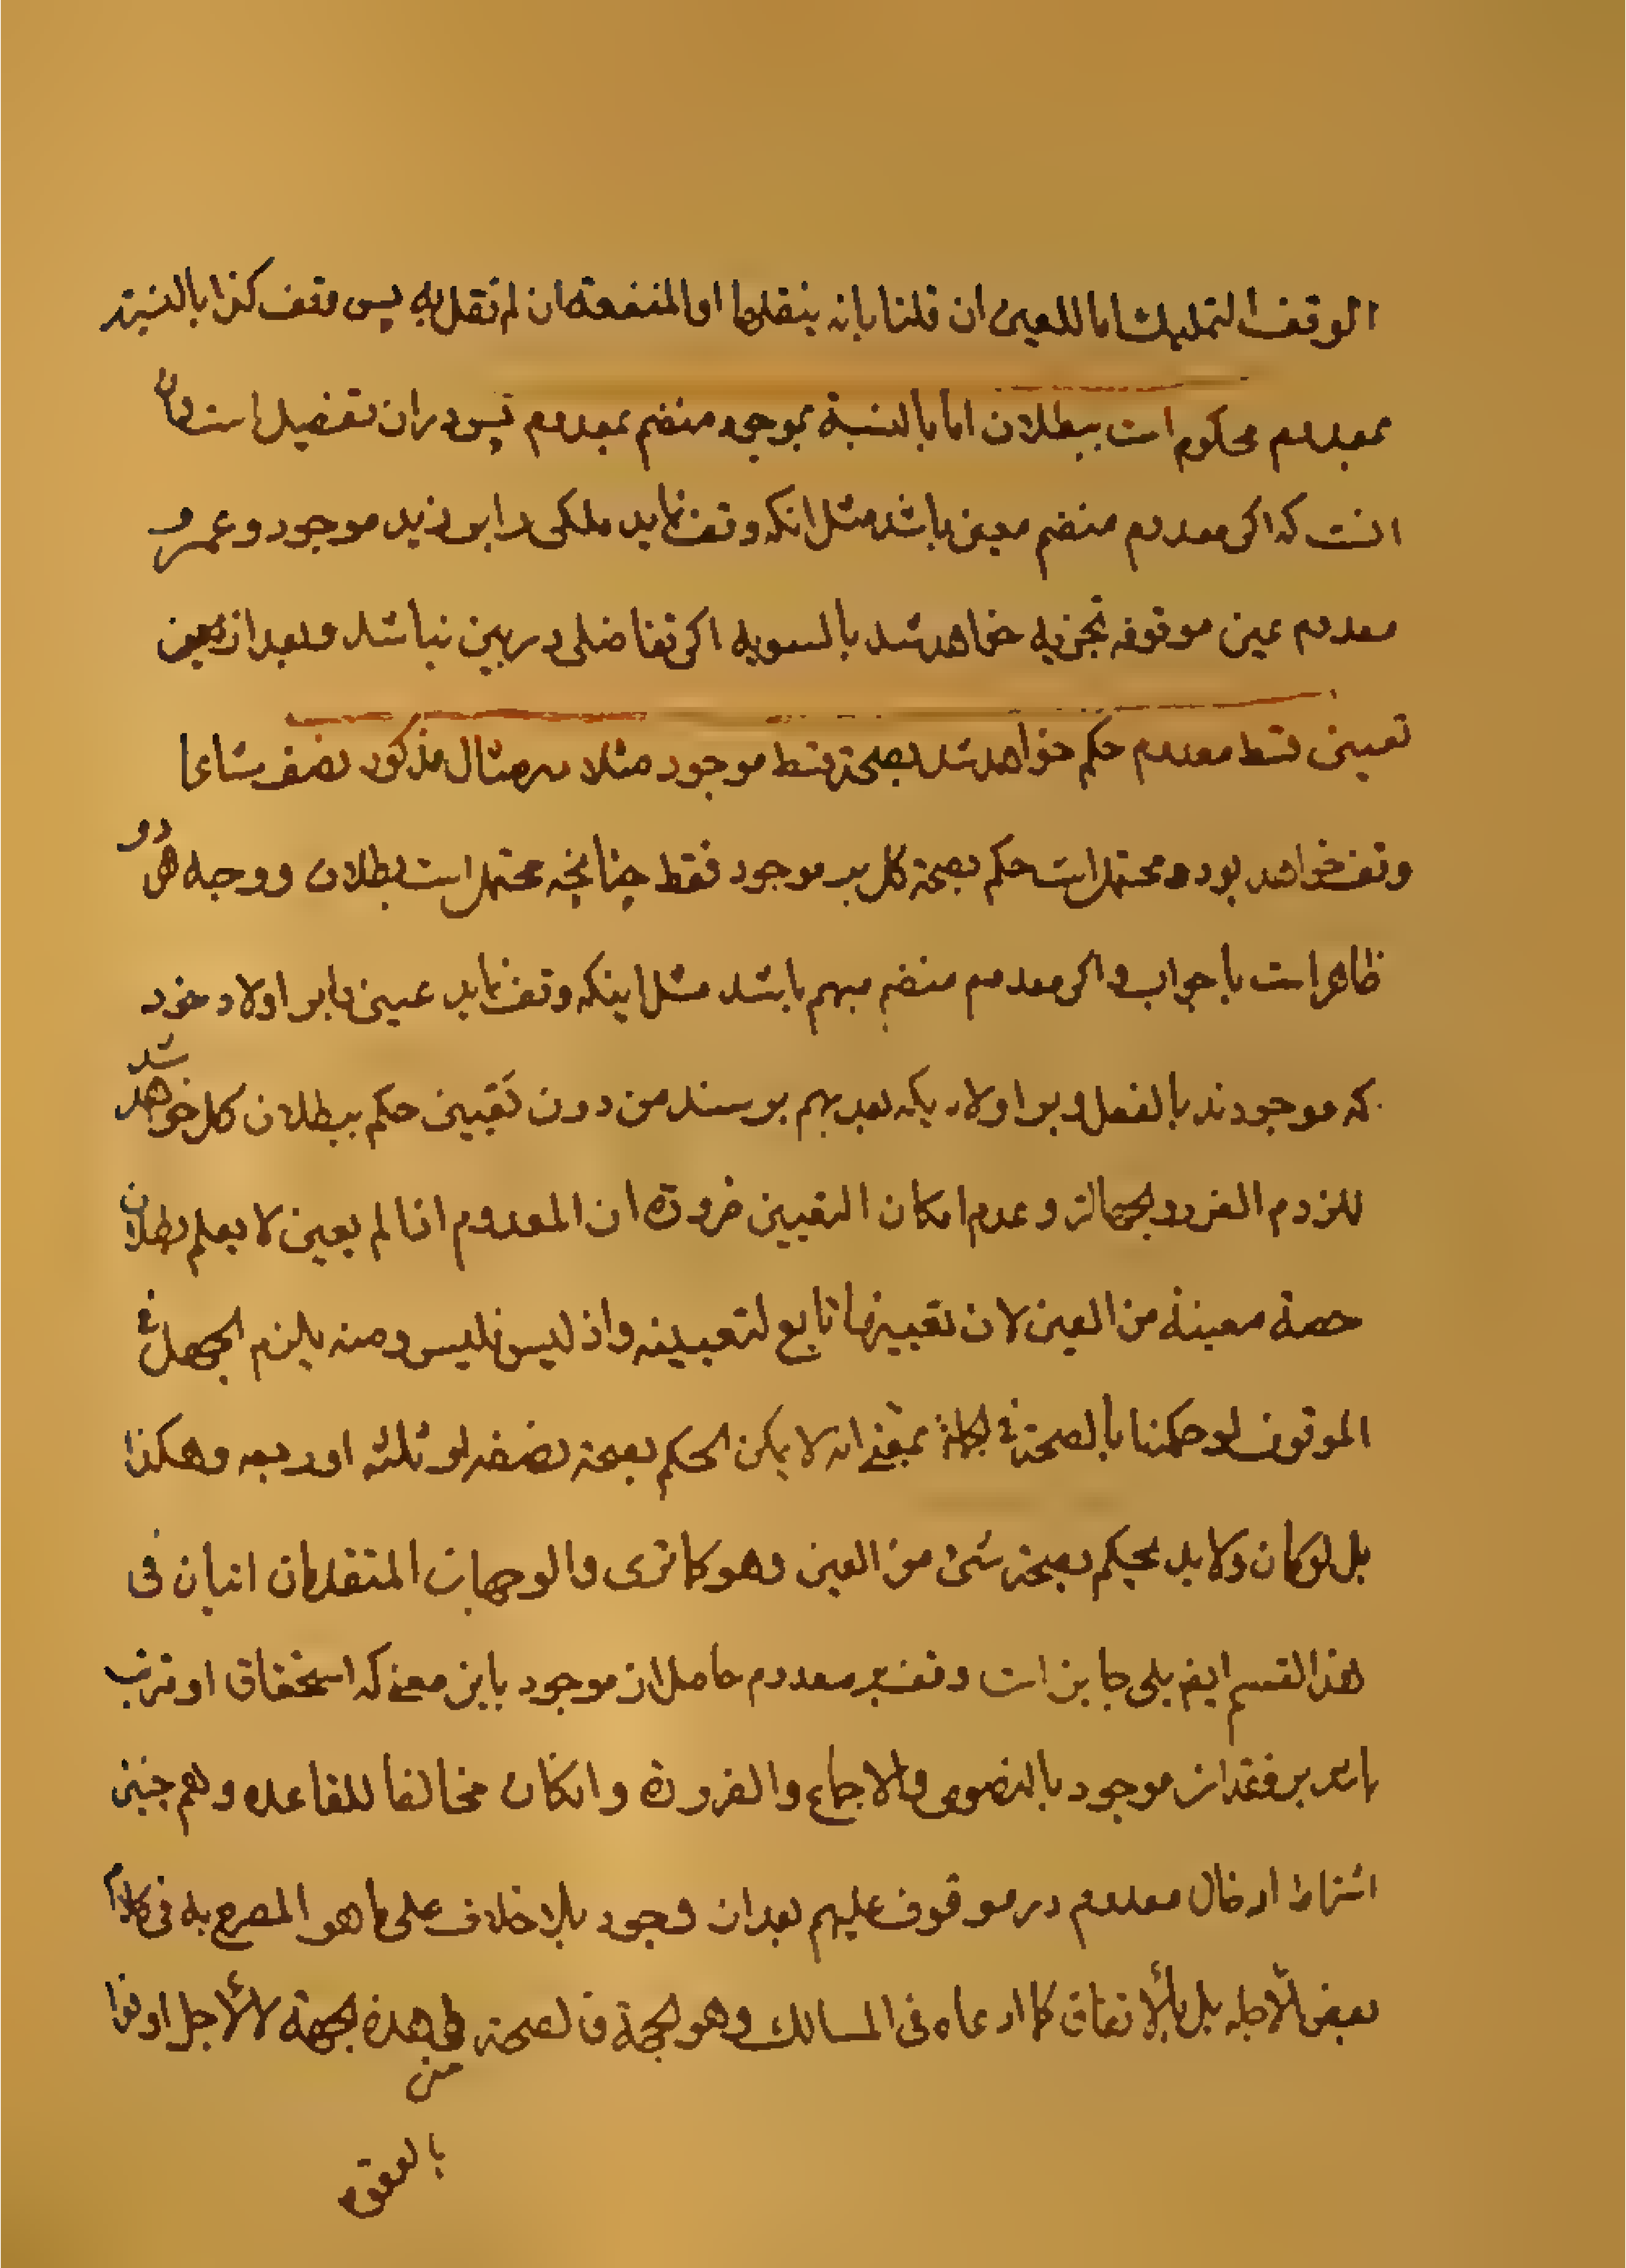 الوقف التمليك اما للعين ان قلنا بانه ينقلها او المنفعة ان لم نقل به پس وقف كذا بالنسبة
بمعدوم محكوم است ببطلان اما بالنسبة بموجود منضم بمعدوم پس در ان تفصيل است بيان
انست كه اكر معدوم منضم معين باشد مثل انكه وقف نمايد ملكى را بر زيد موجود و عمرو
معدوم عين موقوفه تجزيه خواهد شد بالسويه اكر تفاضلى در بين نباشد و بعد از
تعيين قسط معدوم حكم خواهد شد بصحة قسط موجود مثلا در مثال مذكور نصف مشاعا
وقف خواهد بود و محتمل است حكم بصحة كل بر موجود فقط چنانچه محتمل است بطلان و وجه هر دو
ظاهر است با جواب و اكر معدوم منضم مبهم باشد مثل اينكه وقف نمايد عينى را بر اولاد خود
كه موجودند بالفعل و بر اولاد يكه بعد بهم برسند من دون تعيين حكم ببطلان كل خواهد شد
للزوم الغرر و الجهالة و عدم امكان التعيين ضرورة ان المعدوم اذا لم يعين لا يعلم بطلان
حصة معينة من العين لان تعيينها تابع لتعيينه واذ ليس فليس ومنه يلزم الجهل فى
الموقوف لو حكمنا بالصحة فى الجملة بمعنى انه لا يمكن الحكم بصحة نصفه او ثلثه او ربعه وهكذا
بل لو كان ولا بد يحكم بصحة شئ من العين وهو كما ترى والوجهان المتقدمان اتيان فى
هذا القسم ايضا بلى جايز است وقف بر معدوم حاصل از موجود باين معنى كه استحقاق او مرتب
باشد بر فقدان موجود بالنصوص والاجماع والضرورة وانكان مخالفا للقاعده وهم چنين
اشتراط ادخال معدوم در موقوف عليهم بعد ان وجود بلا خلاف على ما هو المصرح به فى كلام
بعض الأجله بل بالأتفاق كما ادعاه فى المسالك وهو الحجة فالصحة فى هذه الجهة لا لأجل اوفوا
من
بالعقود